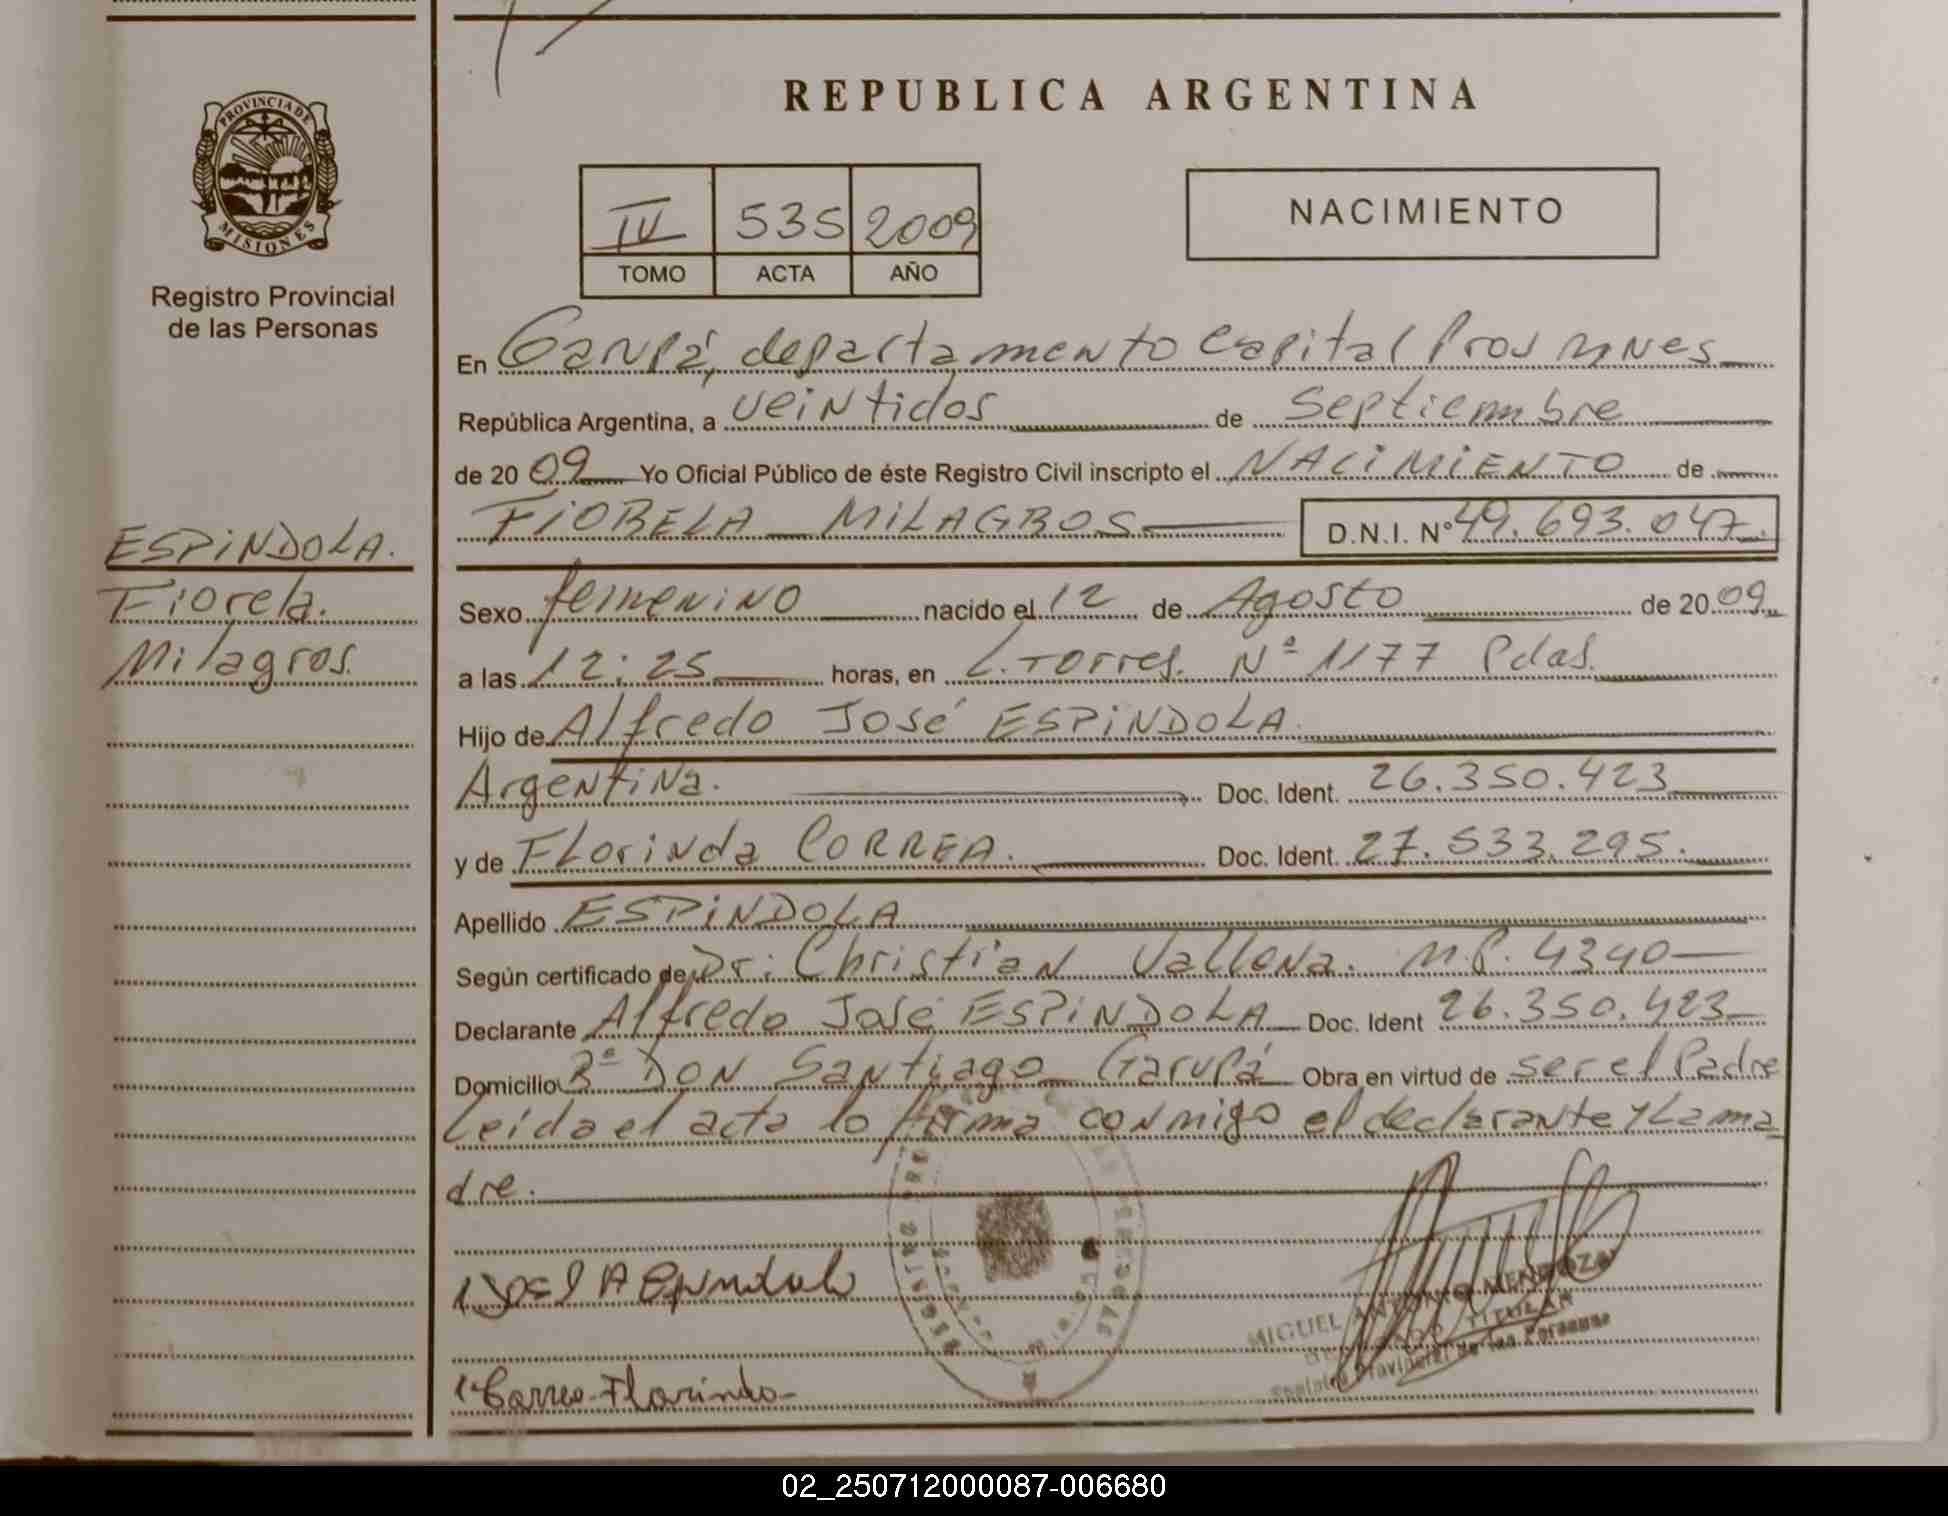 PROVINCIA DE
MISIONES
Registro Provincial
de las Personas
ESPINDOLA.
Fiorela.
Milagros.
REPUBLICA ARGENTINA
IV 535 2009
TOMO ACTA AÑO
NACIMIENTO
En Garupá, departamento Capital Prov Mnes
República Argentina, a veintidos de Septiembre
de 20 09 Yo Oficial Público de éste Registro Civil inscripto el NACIMIENTO de
FIORELA MILAGROS D.N.I. Nº 49.693.047.
Sexo femenino nacido el 12 de Agosto de 20 09
a las 12:25 horas, en L. Torres. Nº 1177 Pdas.
Hijo de Alfredo José ESPINDOLA.
Argentina. Doc. Ident. 26.350.423
y de Florinda CORREA. Doc. Ident. 27.533.295.
Apellido ESPINDOLA
Según certificado de Dr: Christian Vallena. M.P. 4340
Declarante Alfredo José ESPINDOLA Doc. Ident 26.350.423
Domicilio Bº Don Santiago Garupá Obra en virtud de ser el Padre
Leida el acta lo firma conmigo el declarante y La ma
dre.
MIGUEL ANTONIO MENDOZA
TITULAR
Provincial de las Personas
Correa Florinda
02_250712000087-006680